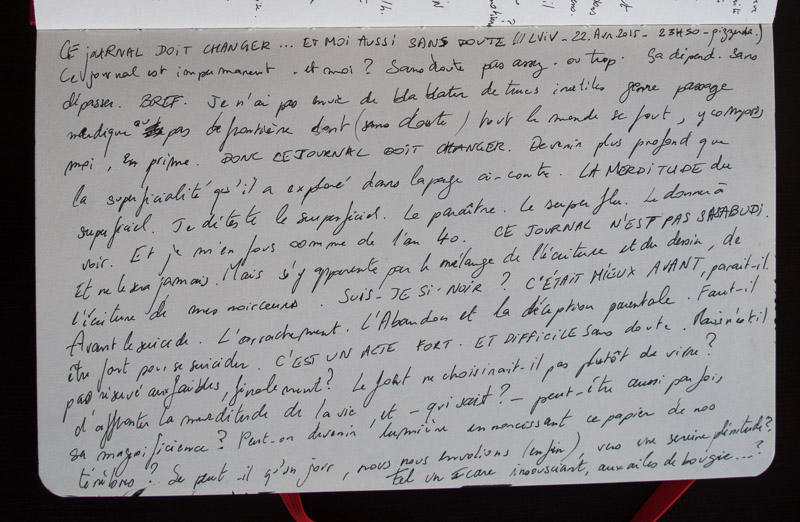 CE JOURNAL DOIT CHANGER ... ET MOI AUSSI SANS DOUTE (// LVIV - 22. Avr. 2015 - 23H50 - pizzeria.)
Ce journal est impermanent. et moi ? Sans doute pas assez. ou trop. Ça dépend. Sans
dépasser. BREF. Je n'ai pas envie de bla blater de trucs inutiles genre passage
merdique au pas de frontière dont (sans doute) tout le monde se fout, y compris
moi, en prime. DONC CE JOURNAL DOIT CHANGER. Devenir plus profond que
la superficialité qu'il a exploré dans la page ci-contre. LA MERDITUDE du
superficiel. Je déteste le superficiel. Le paraître. Le superflu. Le donner à
voir. Et je m'en fous comme de l'an 40. CE JOURNAL N'EST PAS SASABUDI.
Et ne le sera jamais. Mais s'y apparente par le mélange de l'écriture et du dessin, de
l'écriture de mes noirceurs. SUIS-JE SI NOIR ? C'ÉTAIT MIEUX AVANT, parait-il.
Avant le suicide. L'arrachement. L'Abandon et la déception parentale. Faut-il
être fort pour se suicider. C'EST UN ACTE FORT. ET DIFFICILE sans doute. Mais n'est-il
pas réservé aux faibles, finalement ? Le fort ne choisirait-il pas plutôt de vivre ?
d'affronter la merditude de la vie, et - qui sait ? - peut-être aussi parfois,
sa magnificience ? Peut-on devenir lumière en noircissant ce papier de nos
ténèbres ? Se peut-il qu'un jour, nous nous envolions (enfin), vers une sereine plénitude ?
Tel un Icare insousciant, aux ailes de bougie...?